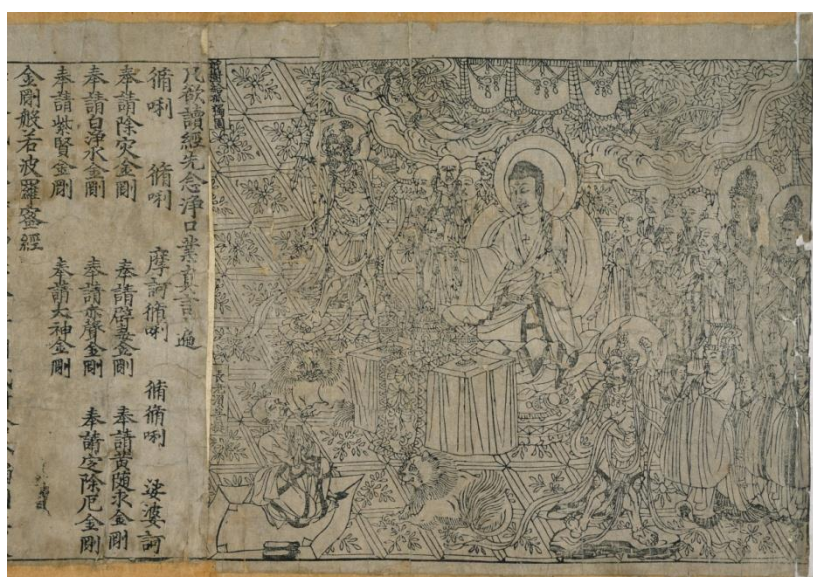 祇樹給孤獨園
凡欲讀經先念淨口業真言一遍
脩唎 脩唎 摩訶脩唎 脩脩唎 娑婆訶
奉請除灾金剛 奉請辟毒金剛 奉請黄随求金剛
奉請白淨水金剛 奉請赤聲金剛 奉請定除厄金剛
奉請紫賢金剛 奉請大神金剛
金剛般若波羅蜜經